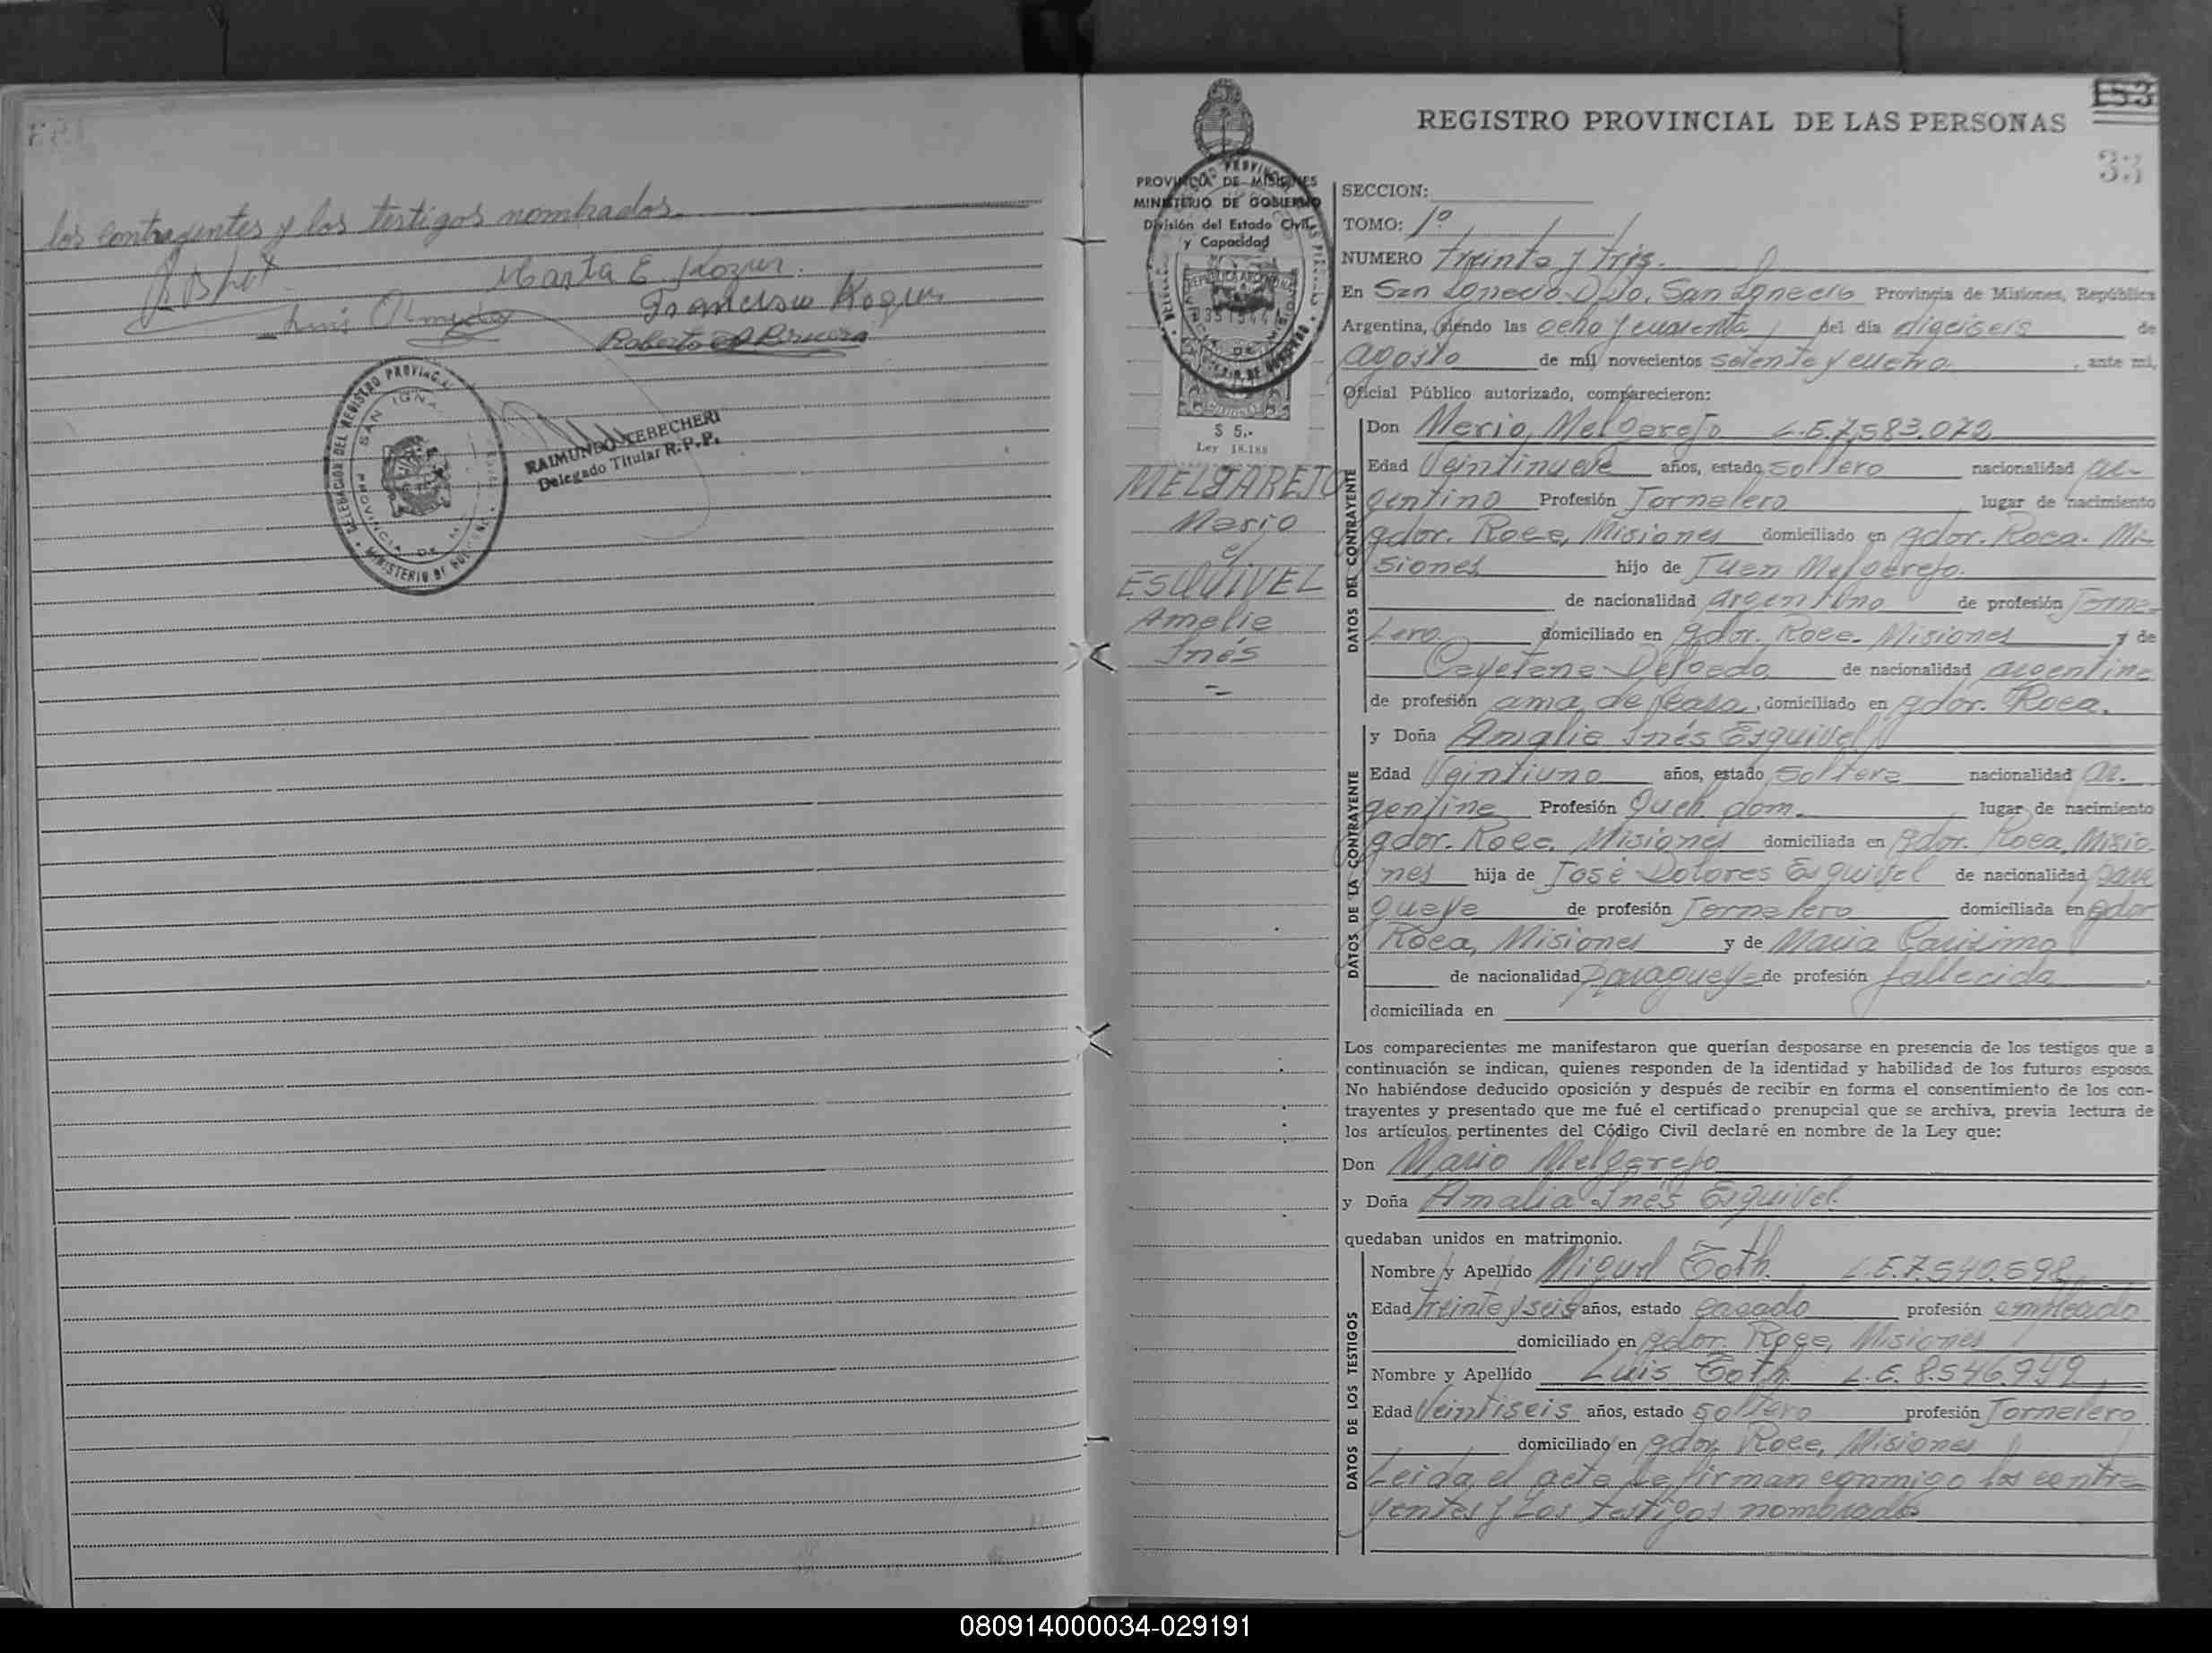 los contrayentes y los testigos nombrados.
Marta E. Kozur.
Francisco Kozur
Luis Olmedo
Roberto A Brucera
DELEGACION DEL REGISTRO PROVINCIAL
MINISTERIO DE GOBIERNO
SAN IGNA
PROVINCIA DE
RAIMUNDO TEBECHERI
Delegado Titular R.P.P.
153
REGISTRO PROVINCIAL DE LAS PERSONAS
33
PROVINCIA DE MISIONES
MINISTERIO DE GOBIERNO
División del Estado Civil
y Capacidad
REPUBLICA ARGENTINA
MISIONES
$ 5.-
Ley 18.188
MELGAREJO
Mario
c/
ESQUIVEL
Amalia
Inés
SECCION:
TOMO: 1º
NUMERO treinta y trés.
En San Ignacio Dpto. San Ignacio Provincia de Misiones, República
Argentina, siendo las ocho y cuarenta, del día dieciseis de
agosto de mil novecientos setenta y cuatro, ante mi,
Oficial Público autorizado, comparecieron:
DATOS DEL CONTRAYENTE
Don Mario Melgarejo L.E.7.583.072
Edad Veintinueve años, estado soltero nacionalidad ar-
gentino Profesión Jornalero lugar de nacimiento
gdor. Roca, Misiones domiciliado en gdor. Roca. Mi-
siones hijo de Juan Melgarejo.
de nacionalidad argentino de profesión Jorna-
lero. domiciliado en gdor. Roca. Misiones y de
Cayetana Delgado de nacionalidad argentina
de profesión ama de casa, domiciliado en gdor. Roca.
DATOS DE LA CONTRAYENTE
y Doña Amalia Inés Esquivel
Edad Veintiuno años, estado soltera nacionalidad ar.
gentina Profesión Queh. dom. lugar de nacimiento
gdor. Roca, Misiones domiciliada en gdor. Roca, Misio-
nes hija de José Dolores Esquivel de nacionalidad para
guaya de profesión Jornalero domiciliada en gdor
Roca, Misiones y de Maria Carisimo
de nacionalidad paraguaya de profesión fallecida.
domiciliada en
Los comparecientes me manifestaron que querían desposarse en presencia de los testigos que a
continuación se indican, quienes responden de la identidad y habilidad de los futuros esposos.
No habiéndose deducido oposición y después de recibir en forma el consentimiento de los con-
trayentes y presentado que me fué el certificado prenupcial que se archiva, previa lectura de
los artículos pertinentes del Código Civil declaré en nombre de la Ley que:
Don Mario Melgarejo
y Doña Amalia Inés Esquivel.
quedaban unidos en matrimonio.
DATOS DE LOS TESTIGOS
Nombre y Apellido Miguel Toth. L.E.7.540.598
Edad treinta y seis años, estado casado profesión empleado
domiciliado en gdor. Roca, Misiones
Nombre y Apellido Luis Toth L.E. 8.546.949
Edad Veintiseis años, estado soltero profesión Jornalero
domiciliado en gdor. Roca, Misiones
Leida el acta la firman conmigo los contra-
yentes y los testigos nombrados
080914000034-029191